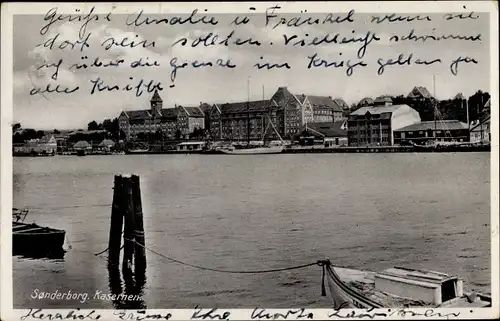 Grüße Amalie u Fränkel wenn sie
dort sein sollten. Vielleicht schwimme
ich über die Grenze im Krieg gelten ja
alle Kniffe.
Sønderborg. Kasernen
Herzliche Grüße Ihre